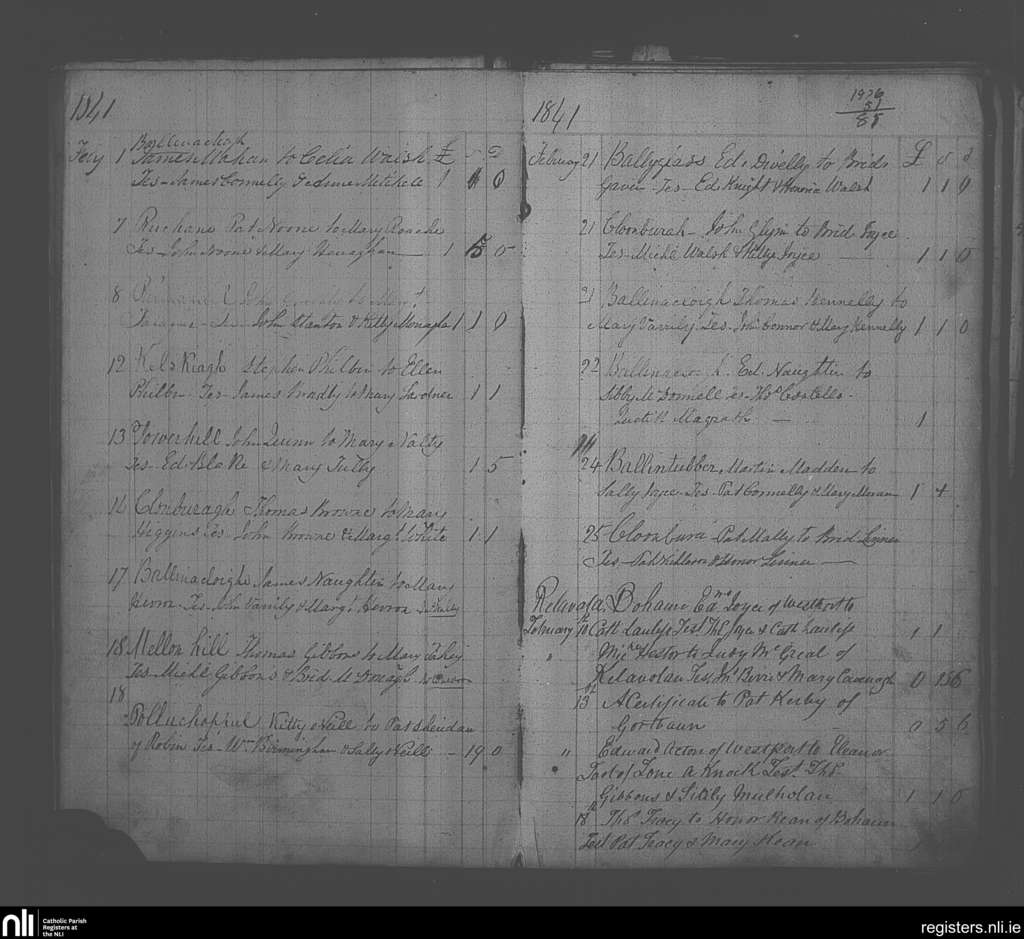 1841
Feby 1 Ballinacloigh
James Mahan to Celia Walsh £ s d
Tes - James Connelly & Anne Mitchell 1 1 0
7 Ruchane Pat Noone to Mary Roache
Tes - John Noone & Mary Henaghan 1 5 0
8 John to
Tes - John Stanton & Kitty Monagha 1 1 0
12 Kelskeagh Stephen Philbin to Ellen
Philbin - Tes - James Bradly & Mary Gardner 1 1
13 Towerhill John Quinn to Mary Nalty
Tes - Ed Blake & Mary Tulty 1 5
14 Clonburagh Thomas Browne to Mary
Higgins Tes - John Browne & Margt White 1 1
17 Ballinacloigh James Naughtin to Mary
Herron - Tes - John Varrily & Margt Herron
18 Mellon hill Thomas Gibbons to Mary
Tes - Michl Gibbons & Brid McDonagh
18
Polluchoppul Kitty Neill to Pat Sheridan
of Robin Tes - Wm Birmingham & Sally Neill - 19 0
1841
1976
51
85
February 21 Ballyglass Ed. Divelly to Brid £ s d
Gaven - Tes - Ed. Knight & Honoria Walsh 1 1 0
21 Clonburah - John Glynn to Brid Joyce
Tes - Michl Walsh & Kitty Joyce 1 1 0
21 Ballinacloigh Thomas Kennelly to
Mary Varrily Tes - John Connor & Mary Kennelly 1 1 0
22 Ed. Naughtin to
Sibby McDonnell Tes - Thos Costello -
Judith Magrath 1
24 Ballintubber Martin Madden to
Sally Joyce - Tes - Pat Connelly & Mary Moran 1 4
25 Cloonbura Pat Mally to Brid Linnen
Tes - Pat Killeen & Honor Linnen
Bohaun Edmd Joyce of Westport to
February 10 Cath Lawless Test Ths Joyce & Cath Lawless 1 1
" Michl Hester to Judy McGreal of
Kelavolan Test Jns Birns & Mary Cavenagh 0 15 6
13 A Certificate to Pat Kerby of
Gortbaun 0 5 6
" Edward Acton of Westport to Eleanor
Foot of Tone a Knock Test. Ths
Gibbons & Sibly Mulholan 1 1 0
18 Ths Tracy to Honor Kean of Bohaun
Test Pat Tracy & Mary Kean
nli
Catholic Parish
Registers at
the NLI
registers.nli.ie